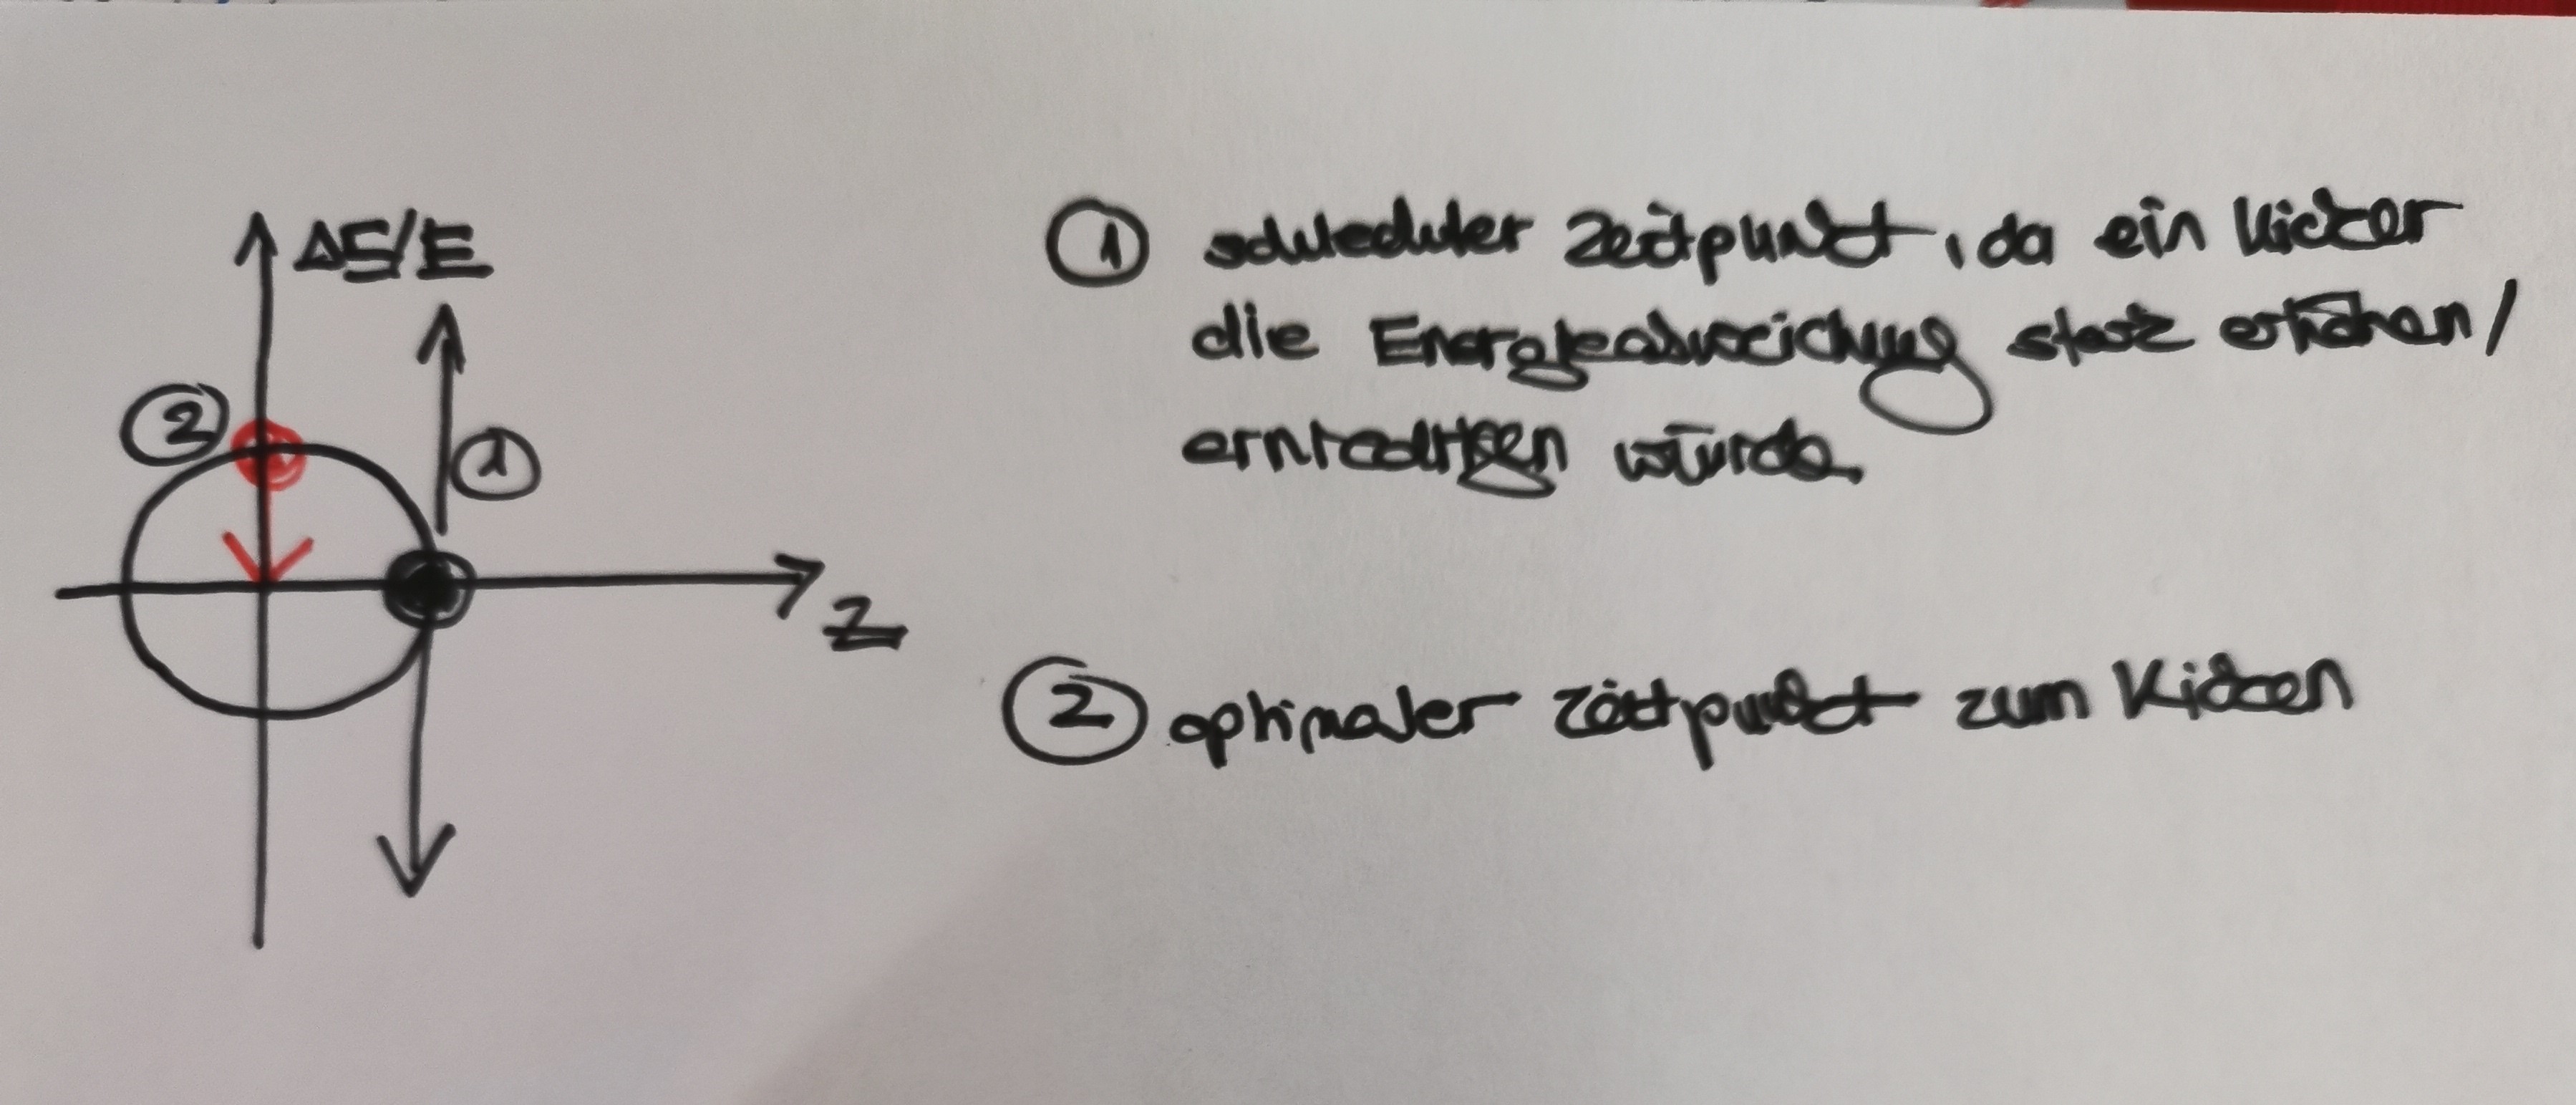 ΔE/E
②
①
z
① schlechter Zeitpunkt, da ein Kicker
die Energieabweichung stark erhöhen/
erniedrigen würde
② optimaler Zeitpunkt zum Kicken